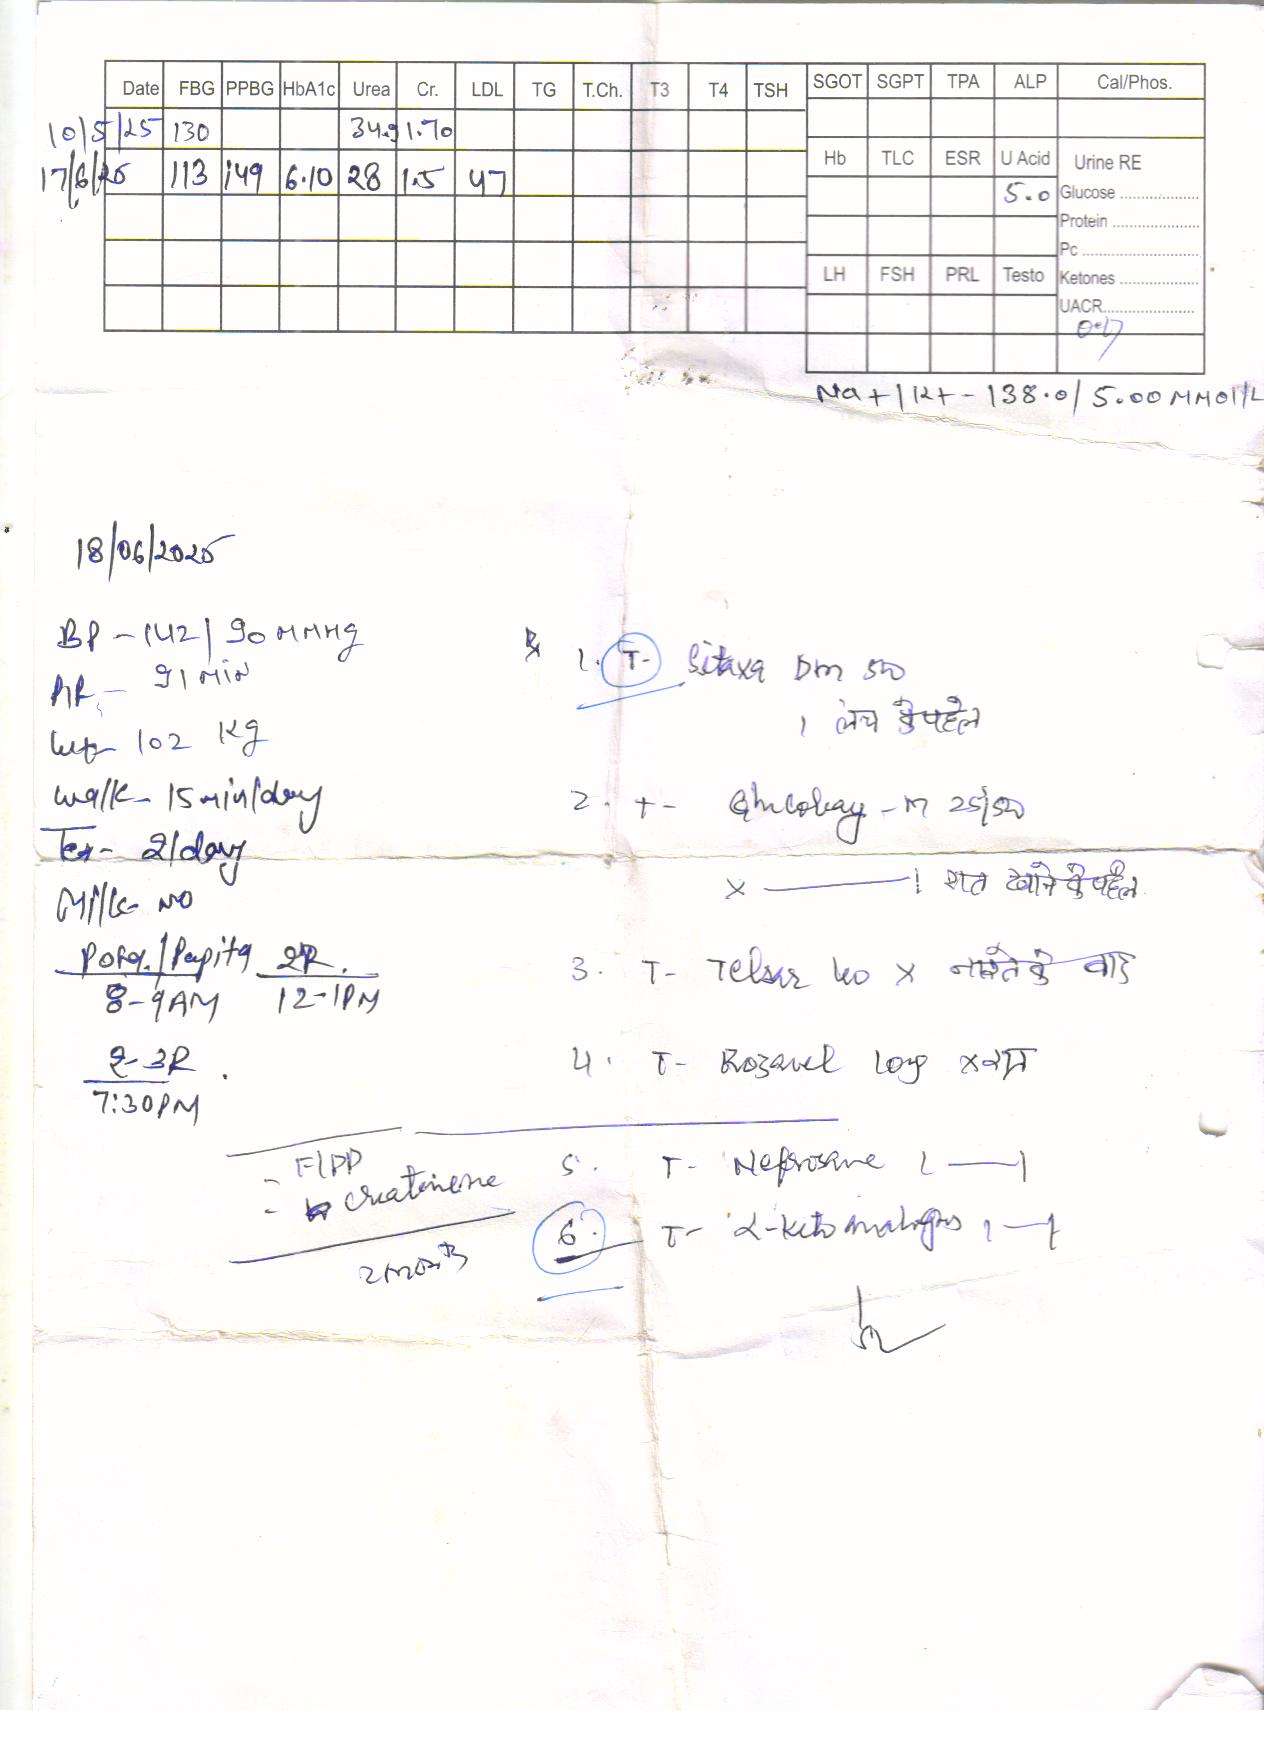 Date FBG PPBG HbA1c Urea Cr. LDL TG T.Ch. T3 T4 TSH
10/5/25 130 34.9 1.70
17/6/25 113 149 6.10 28 1.5 47
SGOT SGPT TPA ALP Cal/Phos.
Hb TLC ESR U Acid Urine RE
5.0 Glucose ....................
Protein ....................
Pc ....................
LH FSH PRL Testo Ketones ....................
UACR....................
Na+/K+ - 138.0/5.00 MMOl/L
18/06/2025
BP - 142/90 MMHg
91 MIN
102 Kg
Walk- 15 min/day
2/day
Milk- NO
/Papita 2R.
8-9AM 12-1PM
2-3R.
7:30PM
- F/PP
- creatinine
2 months
1. T- Sitaxa Dm 500
1 लंच के पहले
2. T- Glucobay-M 25/500
x —— 1 रात खाने के पहले
3. T- Telsar 40 x नाश्ते के बाद
4. T- Rozavel long x रात
5. T- Nefrosave 1 — 1
6. T- α-keto analogues 1 — 1